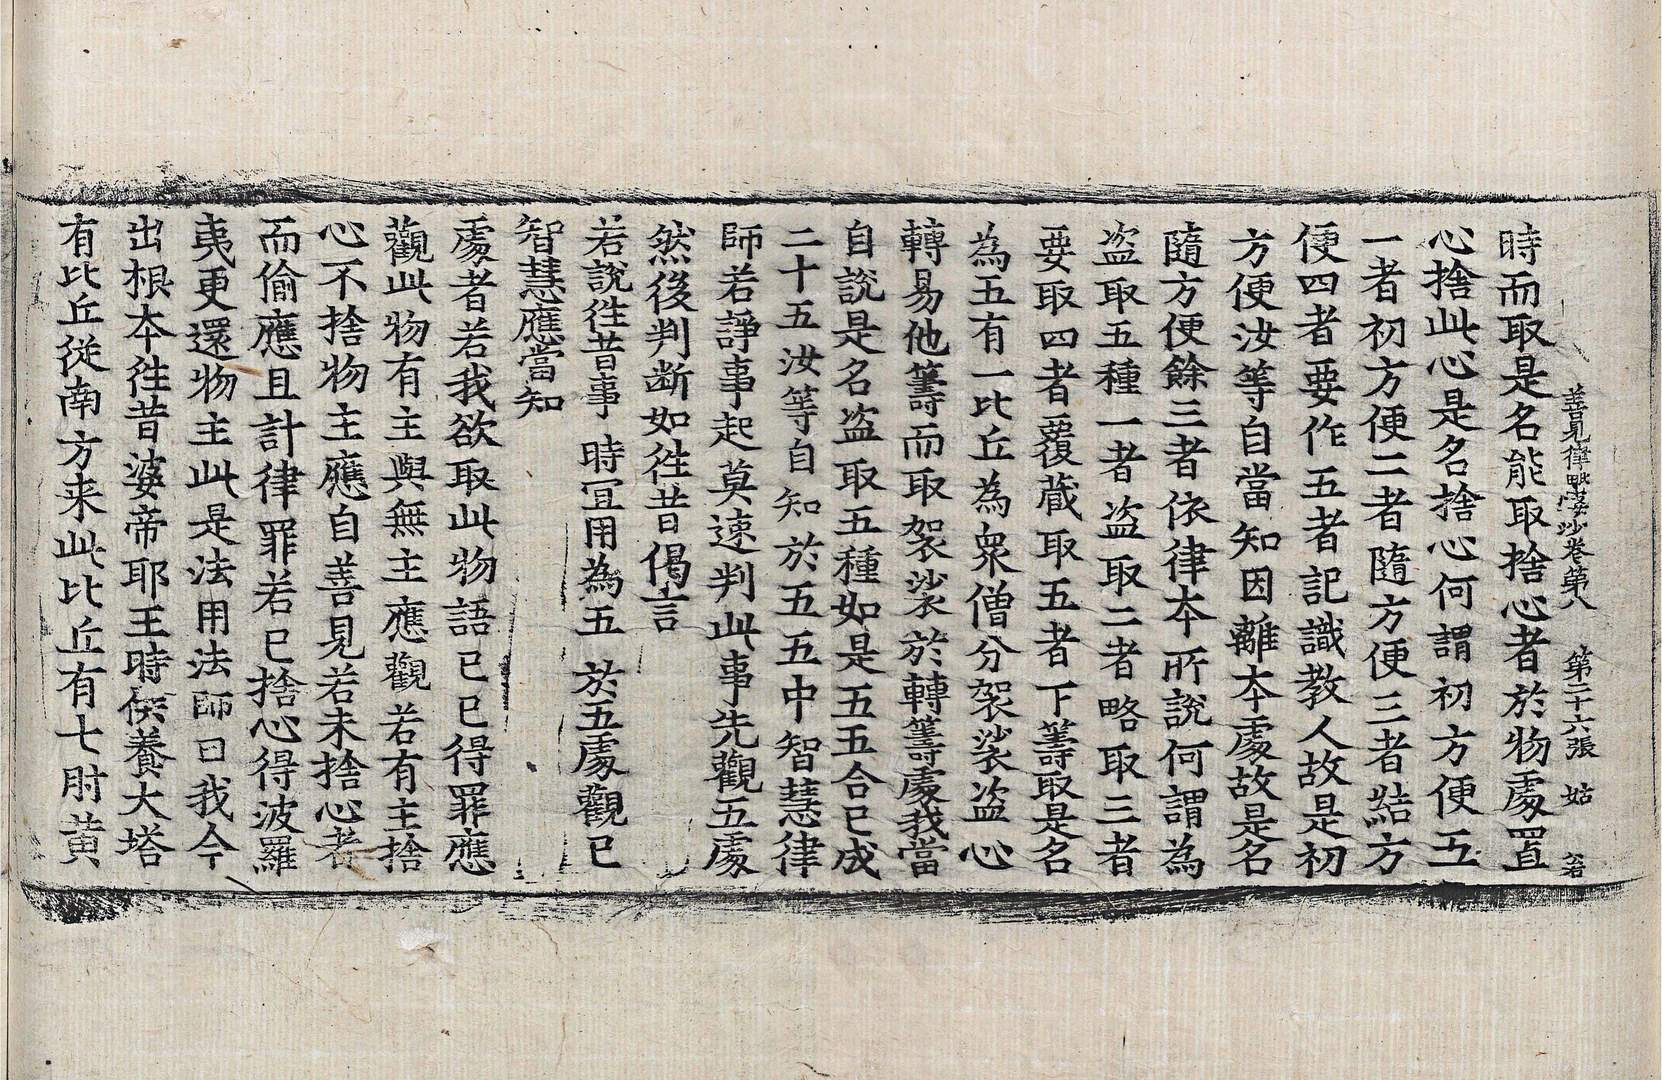 善見律毗婆沙卷第八 第二十六張 姑 君
時而取是名能取捨心者於物處置
心捨此心是名捨心何謂初方便五
一者初方便二者隨方便三者結方
便四者要作五者記識教人故是初
方便汝等自當知因離本處故是名
隨方便餘三者依律本所說何謂為
盜取五種一者盜取二者略取三者
要取四者覆藏取五者下籌取是名
為五有一比丘為衆僧分袈裟盜心
轉易他籌而取袈裟於轉籌處我當
自說是名盜取五種如是五五合已成
二十五汝等自知於五五中智慧律
師若諍事起莫速判此事先觀五處
然後判斷如往昔偈言
若說往昔事 時宜用為五 於五處觀已
智慧應當知
處者若我欲取此物語已已得罪應
觀此物有主與無主應觀若有主捨
心不捨物主應自善見若未捨心者
而偷應且計律罪若已捨心得波羅
夷更還物主此是法用法師曰我今
出根本往昔婆帝耶王時供養大塔
有比丘從南方来此比丘有七肘黃